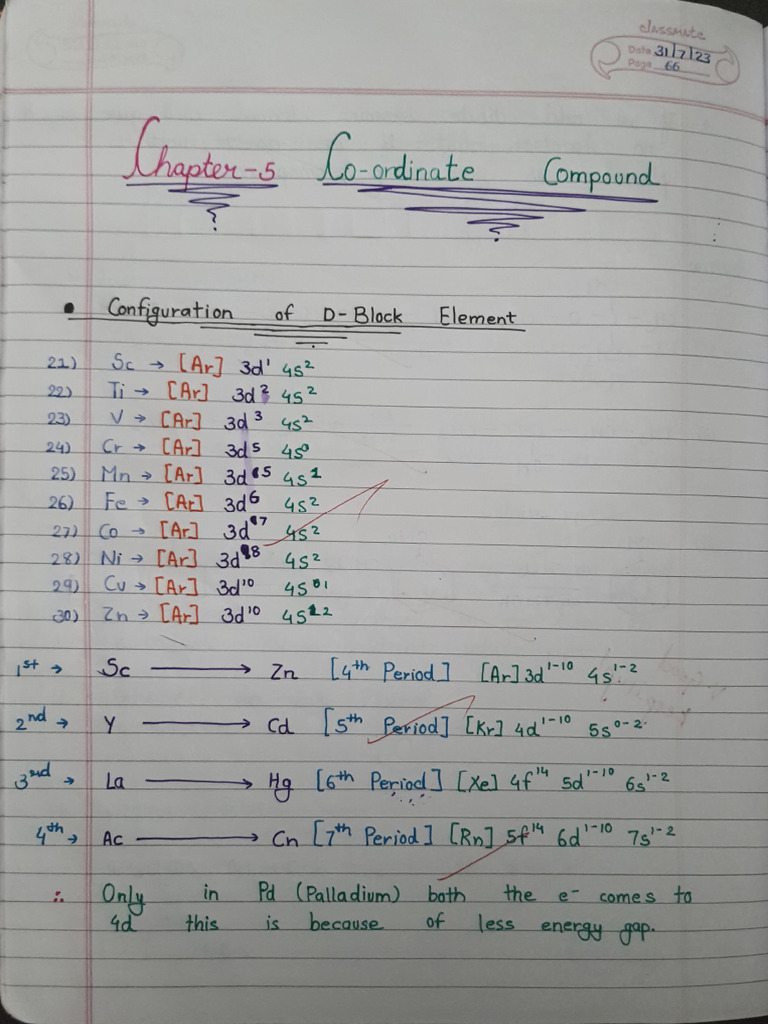 classmate
Date 31/7/23
Page 66
Chapter-5 Co-ordinate Compound
• Configuration of D-Block Element
21) Sc → [Ar] 3d¹ 4s²
22) Ti → [Ar] 3d² 4s²
23) V → [Ar] 3d³ 4s²
24) Cr → [Ar] 3d⁵ 4s⁰
25) Mn → [Ar] 3d⁵ 4s¹
26) Fe → [Ar] 3d⁶ 4s²
27) Co → [Ar] 3d⁷ 4s²
28) Ni → [Ar] 3d⁸ 4s²
29) Cu → [Ar] 3d¹⁰ 4s⁰¹
30) Zn → [Ar] 3d¹⁰ 4s²
1st → Sc ⟶ Zn [4th Period] [Ar] 3d¹⁻¹⁰ 4s¹⁻²
2nd → Y ⟶ Cd [5th Period] [Kr] 4d¹⁻¹⁰ 5s⁰⁻²
3rd → La ⟶ Hg [6th Period] [Xe] 4f¹⁴ 5d¹⁻¹⁰ 6s¹⁻²
4th → Ac ⟶ Cn [7th Period] [Rn] 5f¹⁴ 6d¹⁻¹⁰ 7s¹⁻²
∴ Only in Pd (Palladium) both the e⁻ comes to
4d this is because of less energy gap.